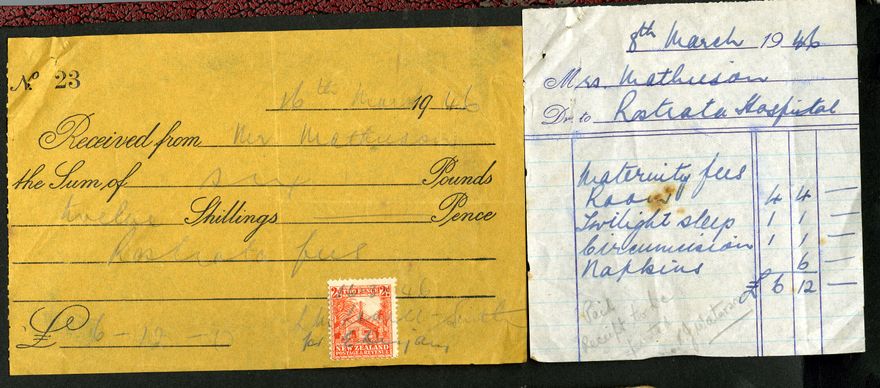 No 23
16th March 1946
Received from Mr Mathieson
the Sum of six Pounds
twelve Shillings Pence
Rostrata fees
£ 6-12-
2d. 2d.
16.3.46
NEW ZEALAND
POSTAGE & REVENUE
for
8th March 1946
Mrs. Mathieson
Dr. to Rostrata Hospital
Maternity fees
Room 4 4 —
Twilight sleep 1 1 —
Circumcision 1 1 —
Napkins 6 —
£ 6 12 —
Paid
receipt to be